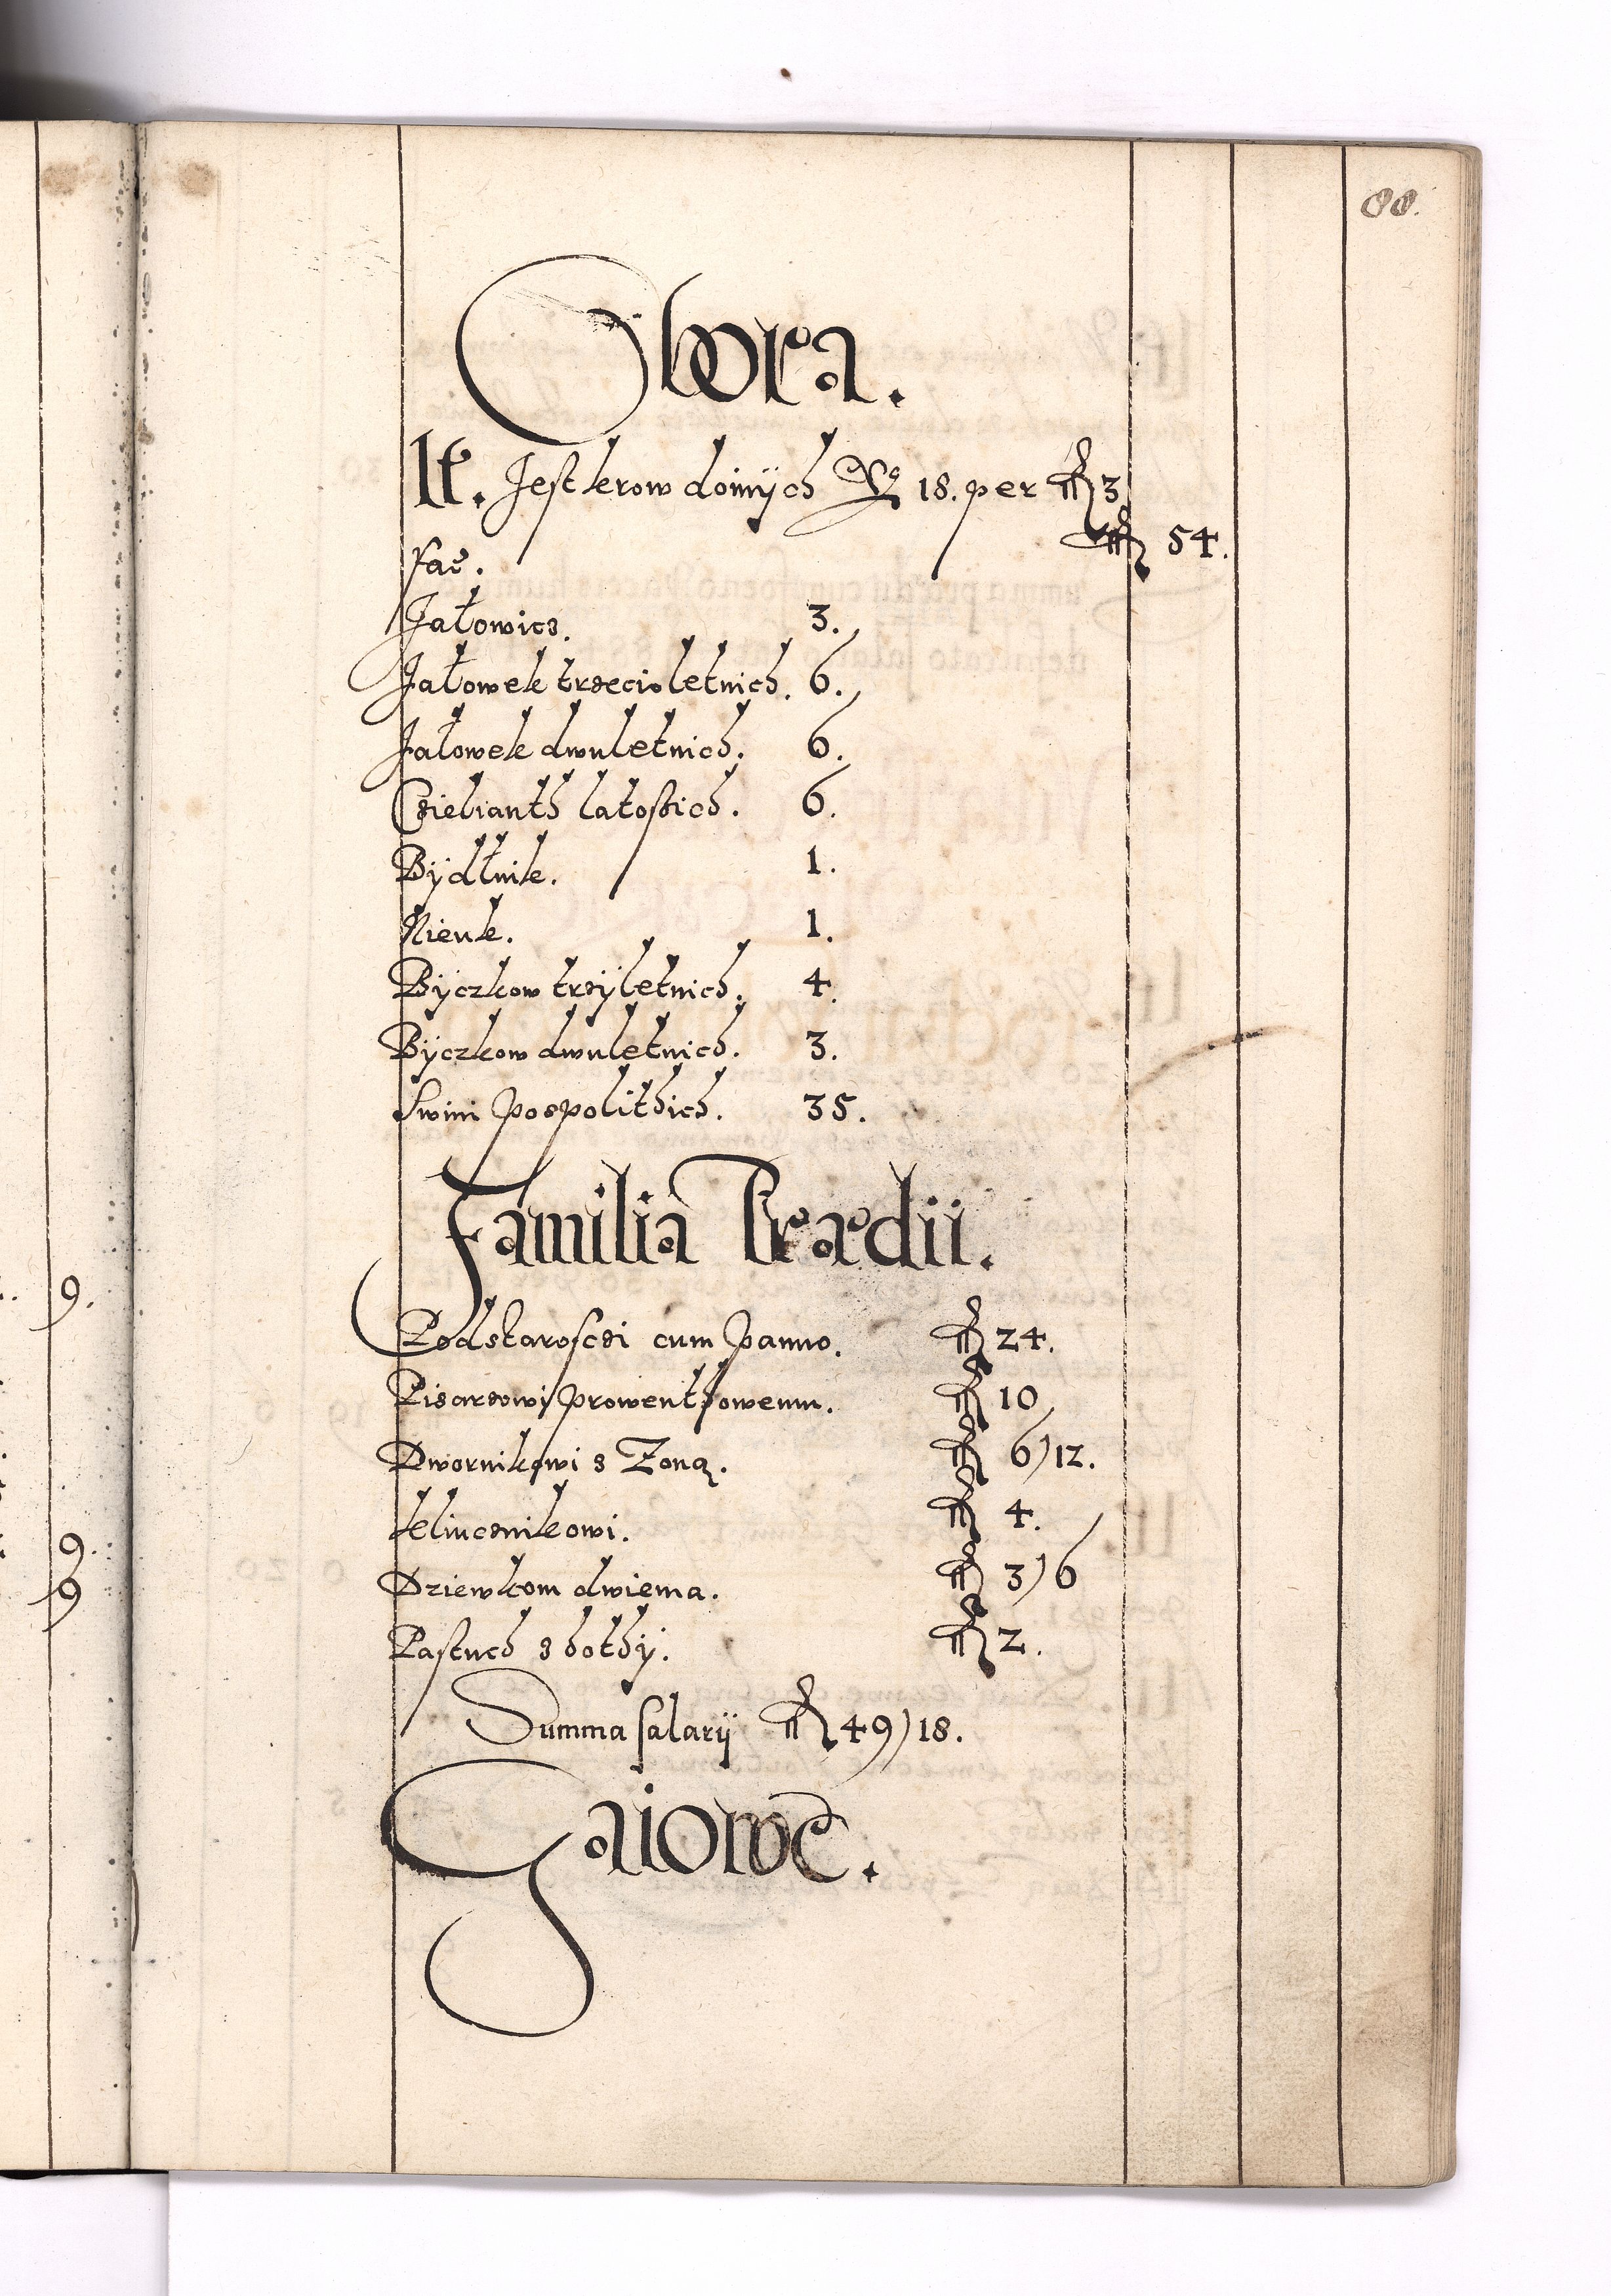 88.
Obora.
It. Jest krow doinÿch No 18. per fl 3
fl 54.
fac̃.
Jałowicz. 3.
Jałowek trzecioletnich. 6.
Jałowek dwuletnich. 6.
Czielianth latossich. 6.
Bÿdłnik. 1.
Bÿczkow trzÿletnich. 4.
Bÿczkow dwuletnich. 3.
Swini pospolithich. 35.
Familia Praedii.
9.
Podstaroscżi cum panno. fl 24.
Pisarzowi prowenthowemu. fl 10
Dwornikowi z Zoną. fl 6)12.
kliucznikowi. fl 4.
9.
Dziewkom dwiema. fl 3)6
9
fl 2.
Summa salarij fl 49)18.
Gaiowe.